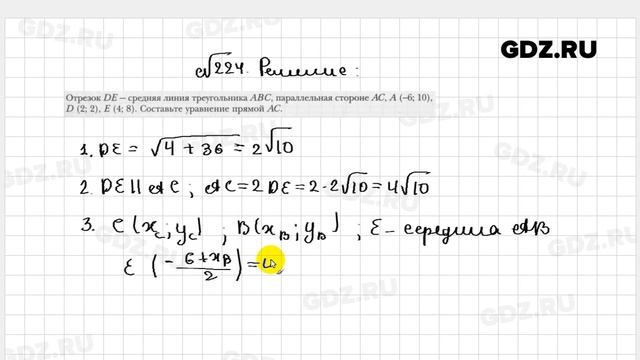 GDZ.RU
№224. Решение:
Отрезок DE — средняя линия треугольника ABC, параллельная стороне AC, A (–6; 10),
D (2; 2), E (4; 8). Составьте уравнение прямой AC.
1. DE = √4 + 36 = 2√10
2. DE || AC ; AC = 2 DE = 2 · 2√10 = 4√10
3. C(x_C; y_C) ; B(x_B; y_B) ; E – середина AB
E (–6 + x_B / 2) = 4